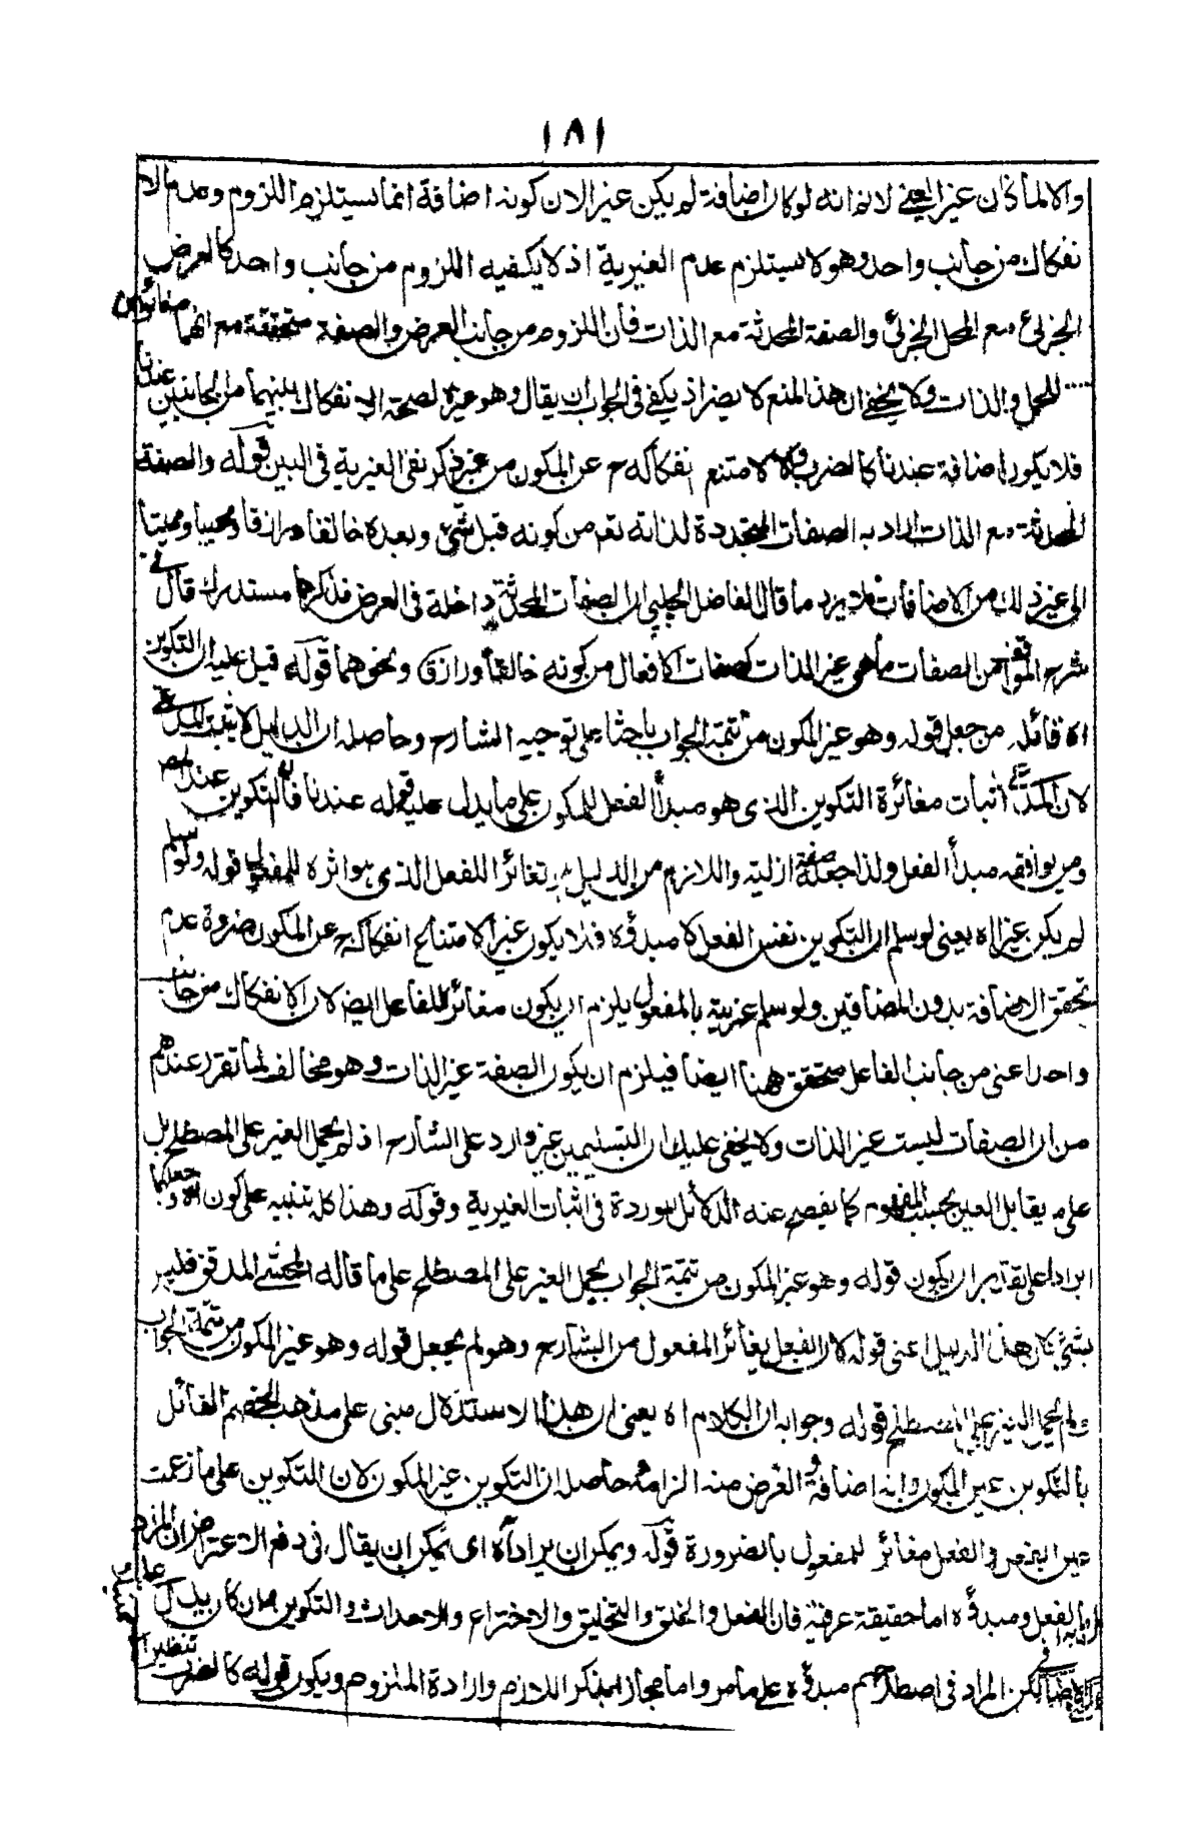 ١٨١
والا لما كان غير لانه لو كان اضافة لم يكن غير الان كونه اضافة انما يستلزم اللزوم وعدم الا
نفكاك من جانب واحد وهو لا يستلزم عدم الغيرية اذ لا يكفيه اللزوم من جانب واحد كالعرض
الجزئي مع المحل الجزئي والصفة المحدثة مع الذات فان اللزوم من جانب العرض والصفة متحققة مع انهما
للمحل والذات ولا يخفى ان هذا المنع لا يضر اذ يكفي في الجواب ان يقال وهو غيره لصحة الانفكاك بينهما من الجانبين عندنا
فلا يكون اضافة عندنا كالضرب والا لامتنع انفكاكه ح عن المكون من غير ذكر نفي الغيرية في البين قوله والصفة
المحدثة مع الذات اراد به الصفات المتجددة لذاته تعم من كونه قبل شيء وبعده خالقا ورازقا ومحييا ومميتا
الى غير ذلك من الاضافات فلا يرد ما قال الفاضل الچلپي ان الصفات المحدثة داخلة في العرض فذكرها مستدرك قال في
شرح المواقف من الصفات ما هو غير الذات كصفات الافعال من كونه خالقا ورازق ونحوهما قوله قيل عليه ان التكوين
اه قائله من جعل قوله وهو غير المكون من تتمة الجواب باحثا على توجيه الشارح وحاصله ان الدليل لا يثبت المدعى
لان المدعى اثبات مغائرة التكوين الذي هو مبدأ الفعل للمكون على ما يدل عليه قوله عندنا فان التكوين عند المص
ومن يوافقه مبدأ الفعل ولذا جعله صفة ازلية واللازم من الدليل تغائر الفعل الذي هو اثره للمفعول قوله ولو سلم
لم يكن غيرا اه يعني لو سلم ان التكوين نفس الفعل لا مبدؤه فلا يكون غيرا لامتناع انفكاكه عن المكون ضرورة عدم
تحقق الاضافة بدون المضافين ولو سلم غيريته بالمفعول يلزم ان يكون مغائرا للفاعل ايضا لان الانفكاك من جانب
واحد اعني من جانب الفاعل متحقق ههنا ايضا فيلزم ان يكون الصفة غير الذات وهو مخالف لما تقرر عندهم
من ان الصفات ليست غير الذات ولا يخفى عليك ان التسليمين غير وارد على الشارح اذ لم يحمل الغير على المصطلح بل
على ما يقابل العين بحسب المفهوم كما يفصح عنه الدلائل الموردة في اثبات الغيرية وقوله وهذا كله تنبيه على كون اه وجعلهما
ايرادا على تقدير ان يكون قوله وهو غير المكون من تتمة الجواب بحمل الغير على المصطلح على ما قاله المحشي المدقق فليس
بشيء لان هذا الدليل اعني قوله لان الفعل يغائر المفعول من الشارح وهو لم يجعل قوله وهو غير المكون من تتمة الجواب
ولم يحمل الغير على المصطلح قوله وجوابه ان الكلام اه يعني ان هذا الاستدلال مبني على مذهب الخصم القائل
بالتكوين عين المكون وانه اضافة والغرض منه الزامه حاصله ان التكوين غير المكون لان التكوين على ما زعمت
عين الفعل والفعل مغائر للمفعول بالضرورة قوله ويمكن ان يراد اه اي يمكن ان يقال في دفع الاعتراض ان المراد
بالفعل ومبدؤه اما حقيقة عرفية فان الفعل والخلق والتخليق والاختراع والاحداث والتكوين وان كان يدل
لكن المراد في اصطلاحهم مبدؤه على ما مر واما مجازا بذكر اللازم وارادة الملزوم ويكون قوله كالضرب تنظيرا